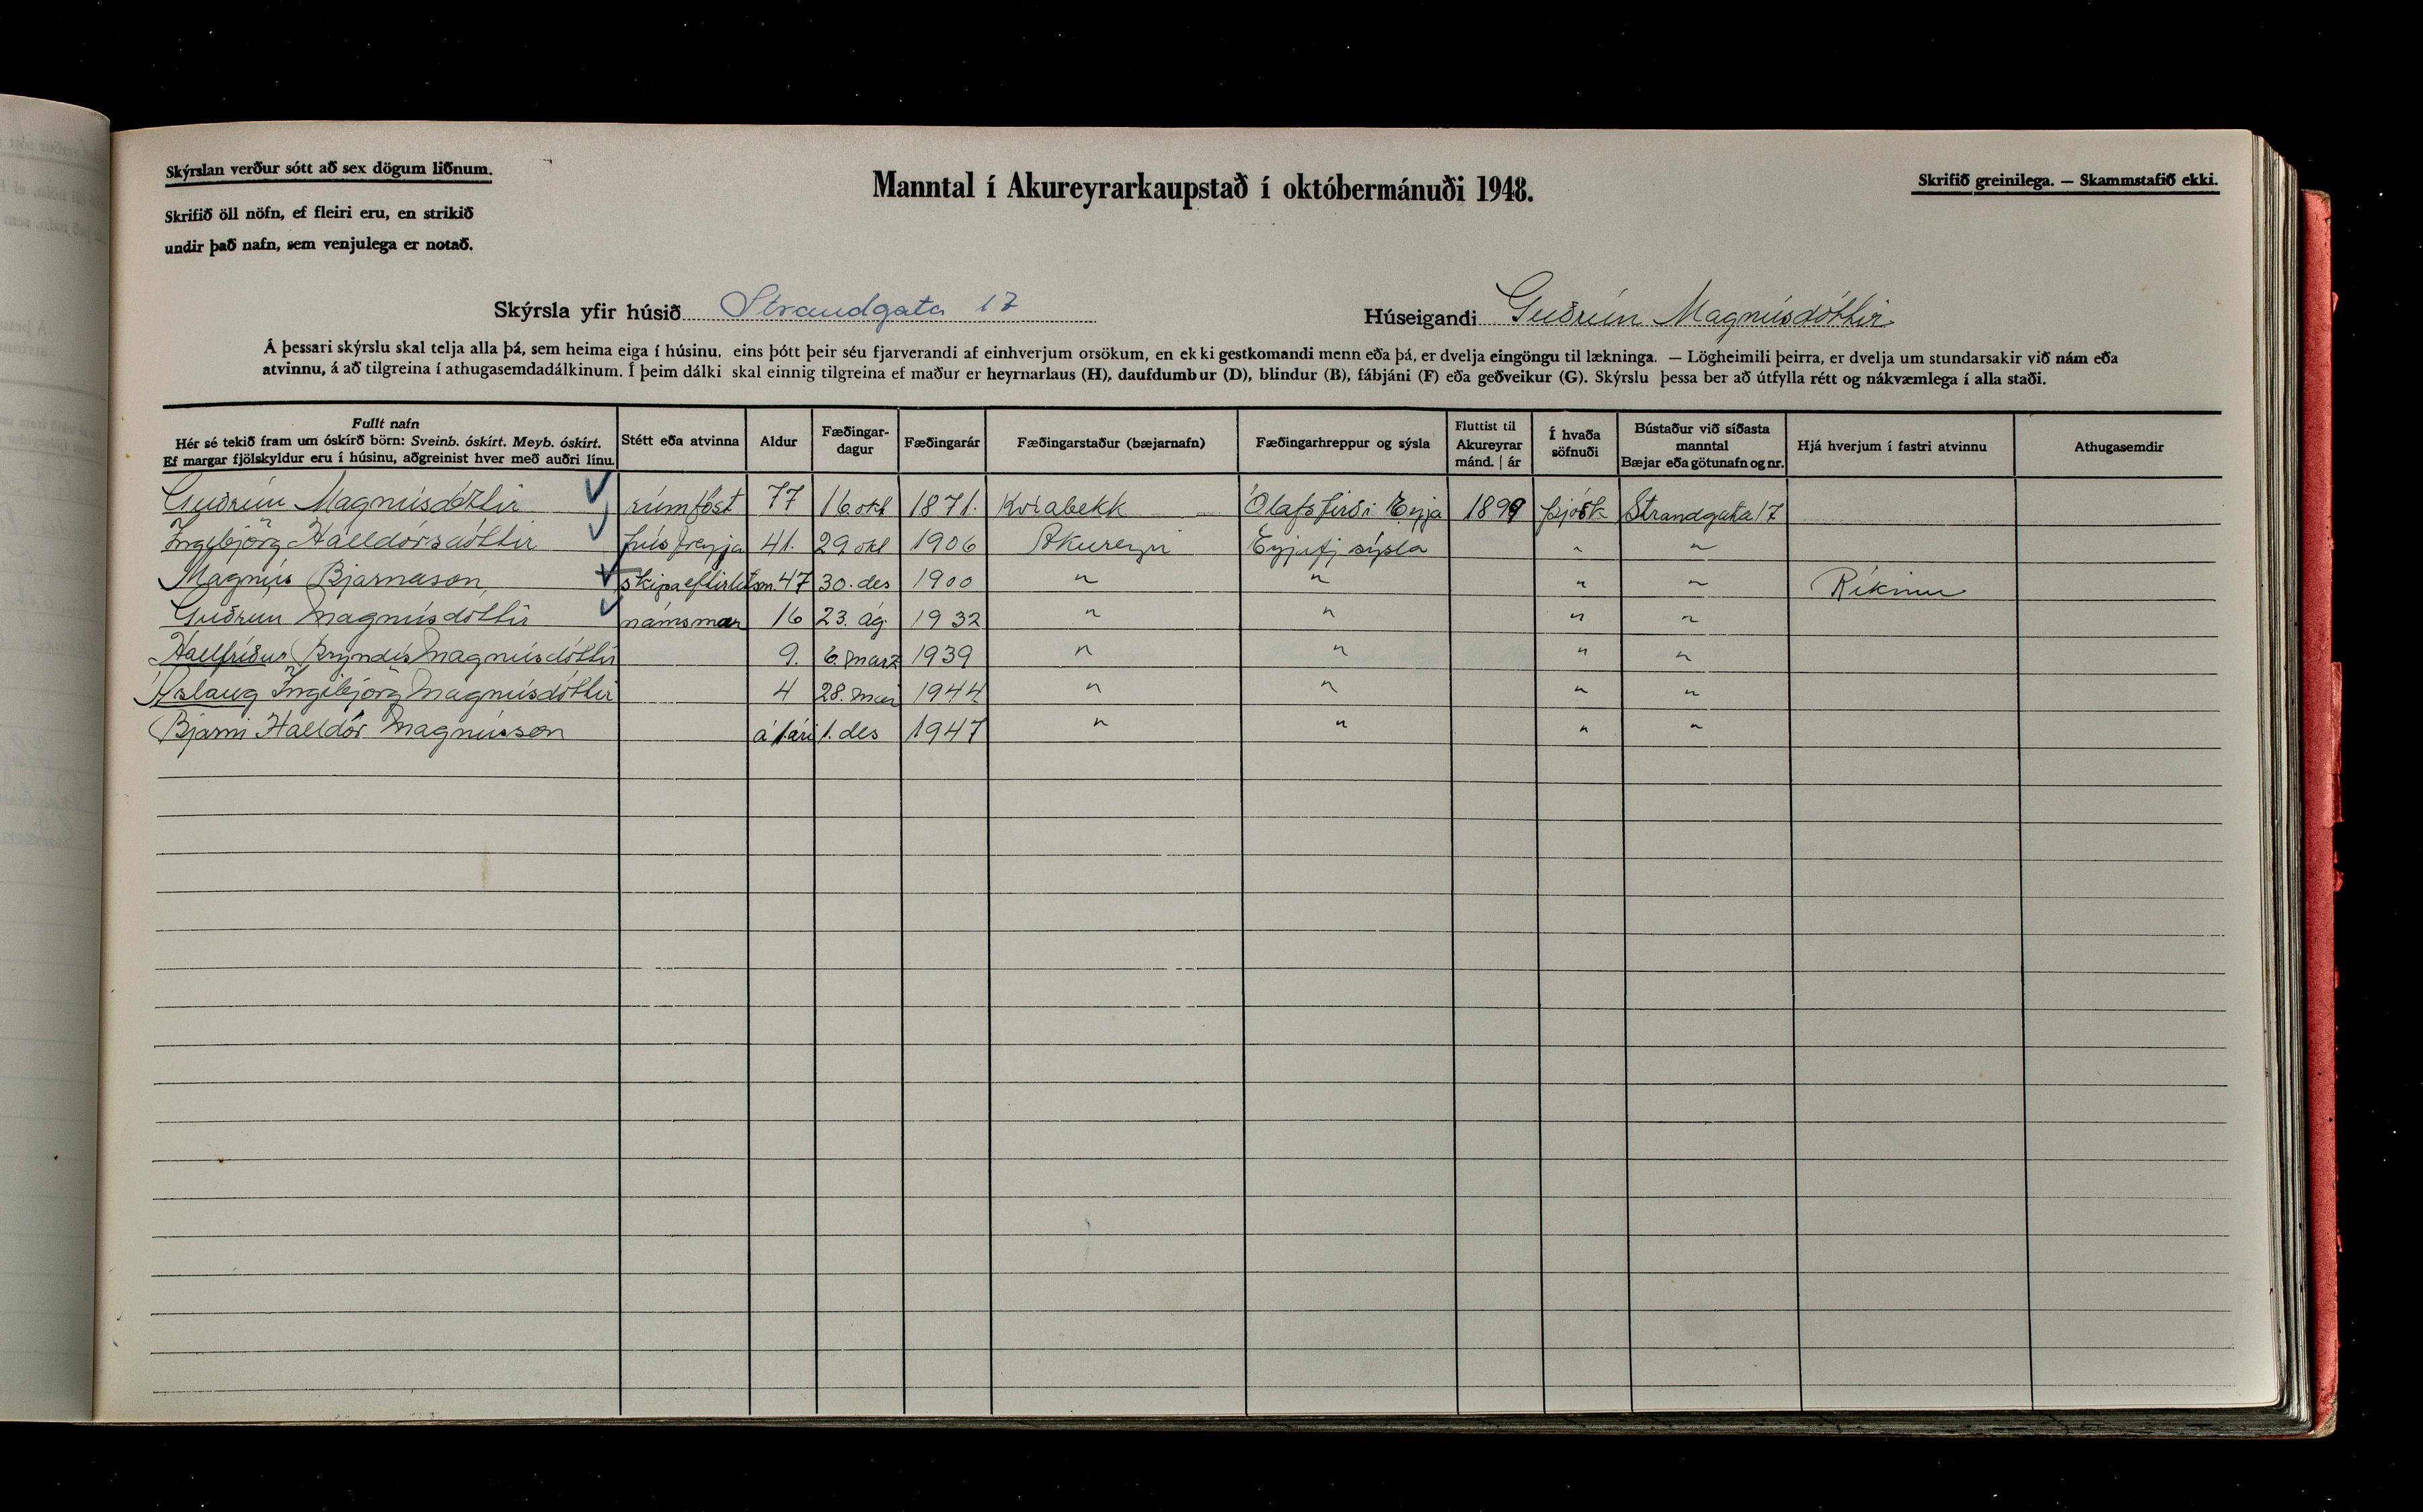 Skýrslan verður sótt að sex dögum liðnum.
Skrifið öll nöfn, ef fleiri eru, en strikið
undir það nafn, sem venjulega er notað.
Manntal í Akureyrarkaupstað í októbermánuði 1948.
Skrifið greinilega. — Skammstafið ekki.
Skýrsla yfir húsið Strandgata 17
Húseigandi Guðrún Magnúsdóttir
Á þessari skýrslu skal telja alla þá, sem heima eiga í húsinu, eins þótt þeir séu fjarverandi af einhverjum orsökum, en ekki gestkomandi menn eða þá, er dvelja eingöngu til lækninga. — Lögheimili þeirra, er dvelja um stundarsakir við nám eða
atvinnu, á að tilgreina í athugasemdadálkinum. Í þeim dálki skal einnig tilgreina ef maður er heyrnarlaus (H), daufdumbur (D), blindur (B), fábjáni (F) eða geðveikur (G). Skýrslu þessa ber að útfylla rétt og nákvæmlega í alla staði.
Fullt nafn
Hér sé tekið fram um óskírð börn: Sveinb. óskírt. Meyb. óskírt.
Ef margar fjölskyldur eru í húsinu, aðgreinist hver með auðri línu.
Stétt eða atvinna
Aldur
Fæðingar-
dagur
Fæðingarár
Fæðingarstaður (bæjarnafn)
Fæðingarhreppur og sýsla
Fluttist til
Akureyrar
mánd. | ár
Í hvaða
söfnuði
Bústaður við síðasta
manntal
Bæjar eða götunafn og nr.
Hjá hverjum í fastri atvinnu
Athugasemdir
Guðrún Magnúsdóttir rúmföst 77 16. okt 1871. Kviabekk Ólafsfirði Eyja 1899 þjóðk Strandgata 17
Ingibjörg Halldórsdóttir húsfreyja 41. 29 okt 1906 Akureyri Eyjafj sýsla " "
Magnús Bjarnason, skipaeftirlitsm. 47 30. des 1900 " " " " Ríkinu
Guðrun Magnúsdóttir námsmær 16 23. ág. 1932 " " " "
Hallfríður Bryndís Magnúsdóttir 9. 6. marz 1939 " " " "
Áslaug Ingibjörg Magnúsdóttir 4 28. mai 1944 " " " "
Bjarni Halldór Magnússon á 1. ári 1. des 1947 " " " "